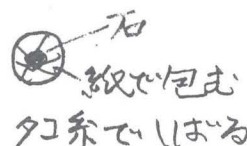 石
紙で包む
タコ糸でしばる